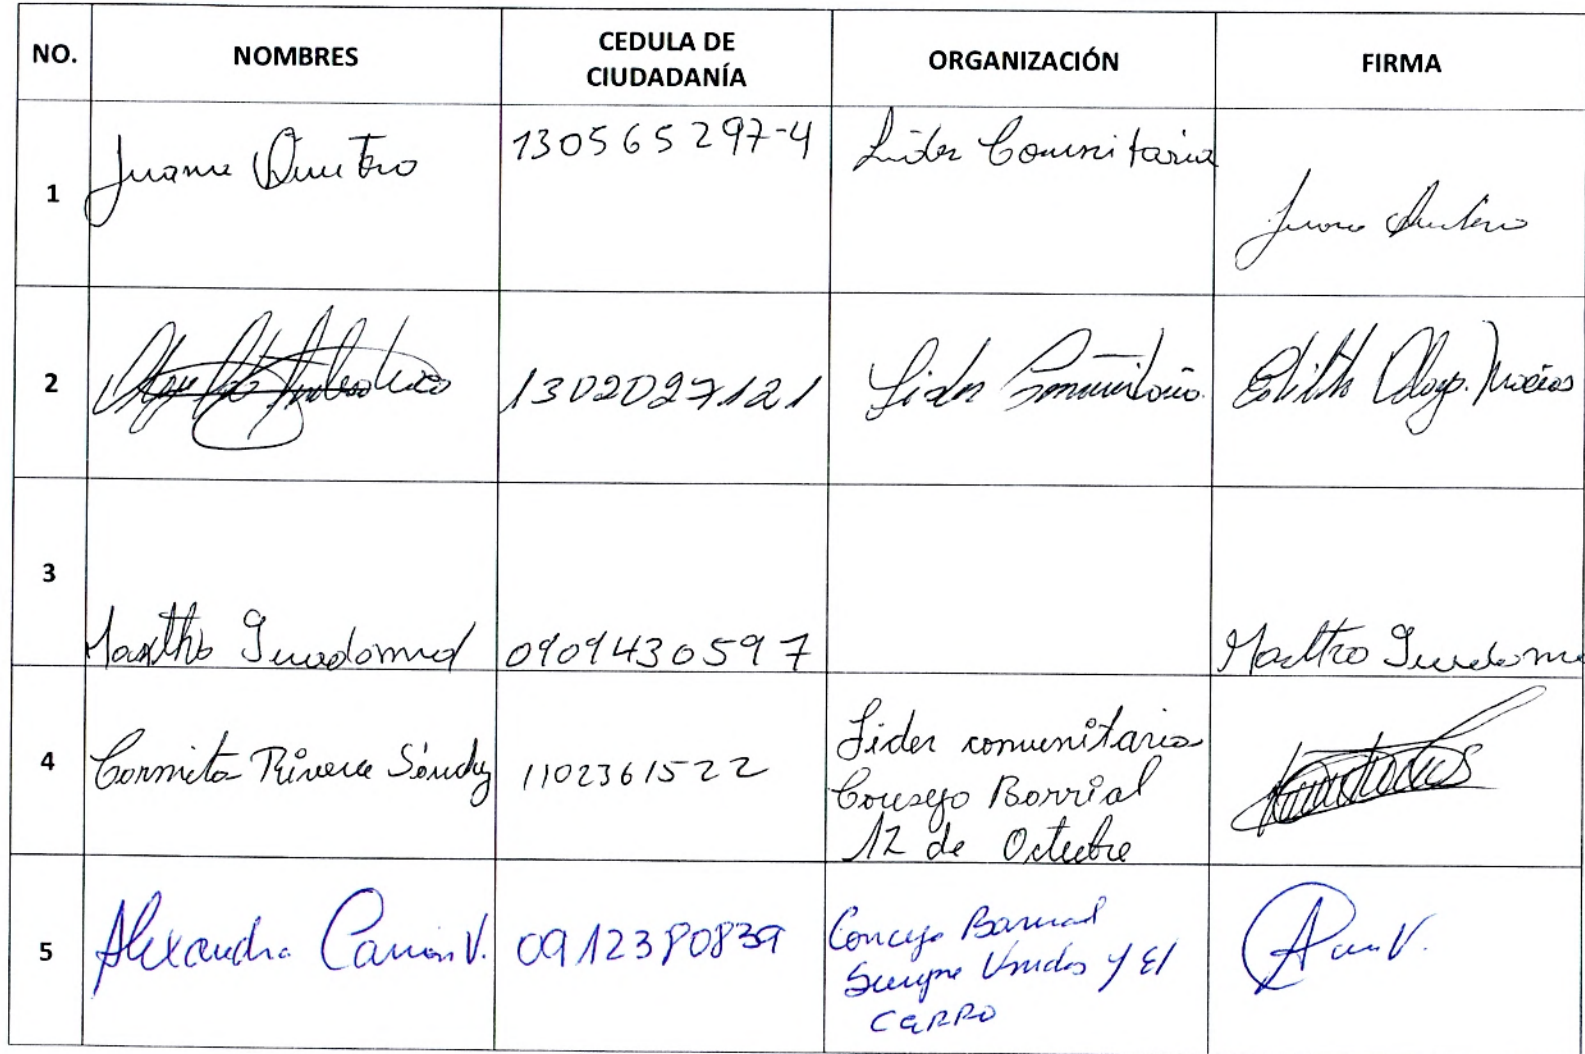 NO. NOMBRES CEDULA DE CIUDADANÍA ORGANIZACIÓN FIRMA
1 Juana Quintero 130565297-4 Lider Comunitaria
2 1302027121 Lider Comunitario. Edilth Macias
3 Martha 0909430597 Martha
4 Carmita Rivera Sánchez 1102361522 Lider comunitaria
Consejo Barrial
12 de Octubre
5 Alexandra Carrion V. 0912380839 Concejo Barrial
Siempre Unidos y El
CERRO